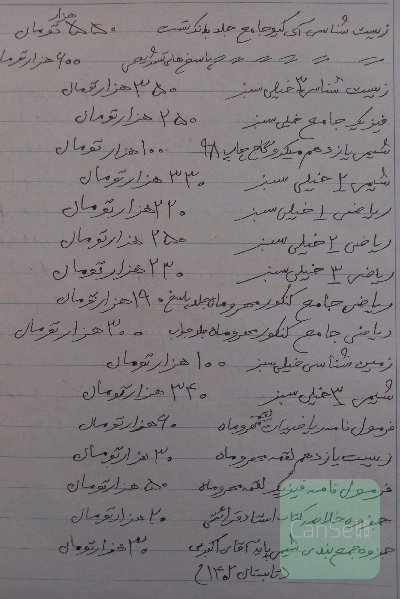 زیست شناسی آی کیو جامع جلد تست ۵۵۰ هزار تومان
〃 〃 〃 〃 〃 پاسخ های تشریحی ۶۰۰ هزار تومان
زیست شناسی ۳ خیلی سبز ۳۵۰ هزار تومان
فیزیک جامع خیلی سبز ۲۵۰ هزار تومان
شیمی یازدهم میکرو گاج چاپ ۹۸ ۱۰۰ هزار تومان
شیمی ۱ خیلی سبز ۳۳۰ هزار تومان
ریاضی ۱ خیلی سبز ۲۲۰ هزار تومان
ریاضی ۲ خیلی سبز ۲۵۰ هزار تومان
ریاضی ۳ خیلی سبز ۲۳۰ هزار تومان
ریاضی جامع کنکور مهروماه جلد پاسخ ۱۹۰ هزار تومان
ریاضی جامع کنکور مهروماه جلد ۳۰۰ هزار تومان
زمین شناسی خیلی سبز ۱۰۰ هزار تومان
شیمی ۳ خیلی سبز ۳۴۰ هزار تومان
فرمول نامه ریاضیات لقمه مهروماه ۶۰ هزار تومان
زیست یازدهم لقمه مهروماه ۳۰ هزار تومان
فرمول نامه فیزیک لقمه مهروماه ۵۰ هزار تومان
جزوه خلاصه کتاب استاد قرائتی ۲۰ هزار تومان
جزوه جمع بندی شیمی پایه آقای اکبری ۳۰ هزار تومان
(تابستان ۱۴۰۲)
CanSell